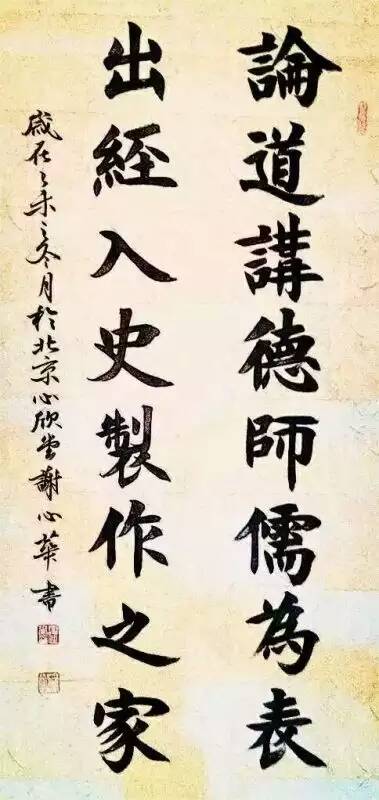 論道講德師儒為表
出經入史製作之家
歲在乙未之冬月於北京心欣堂謝心華書